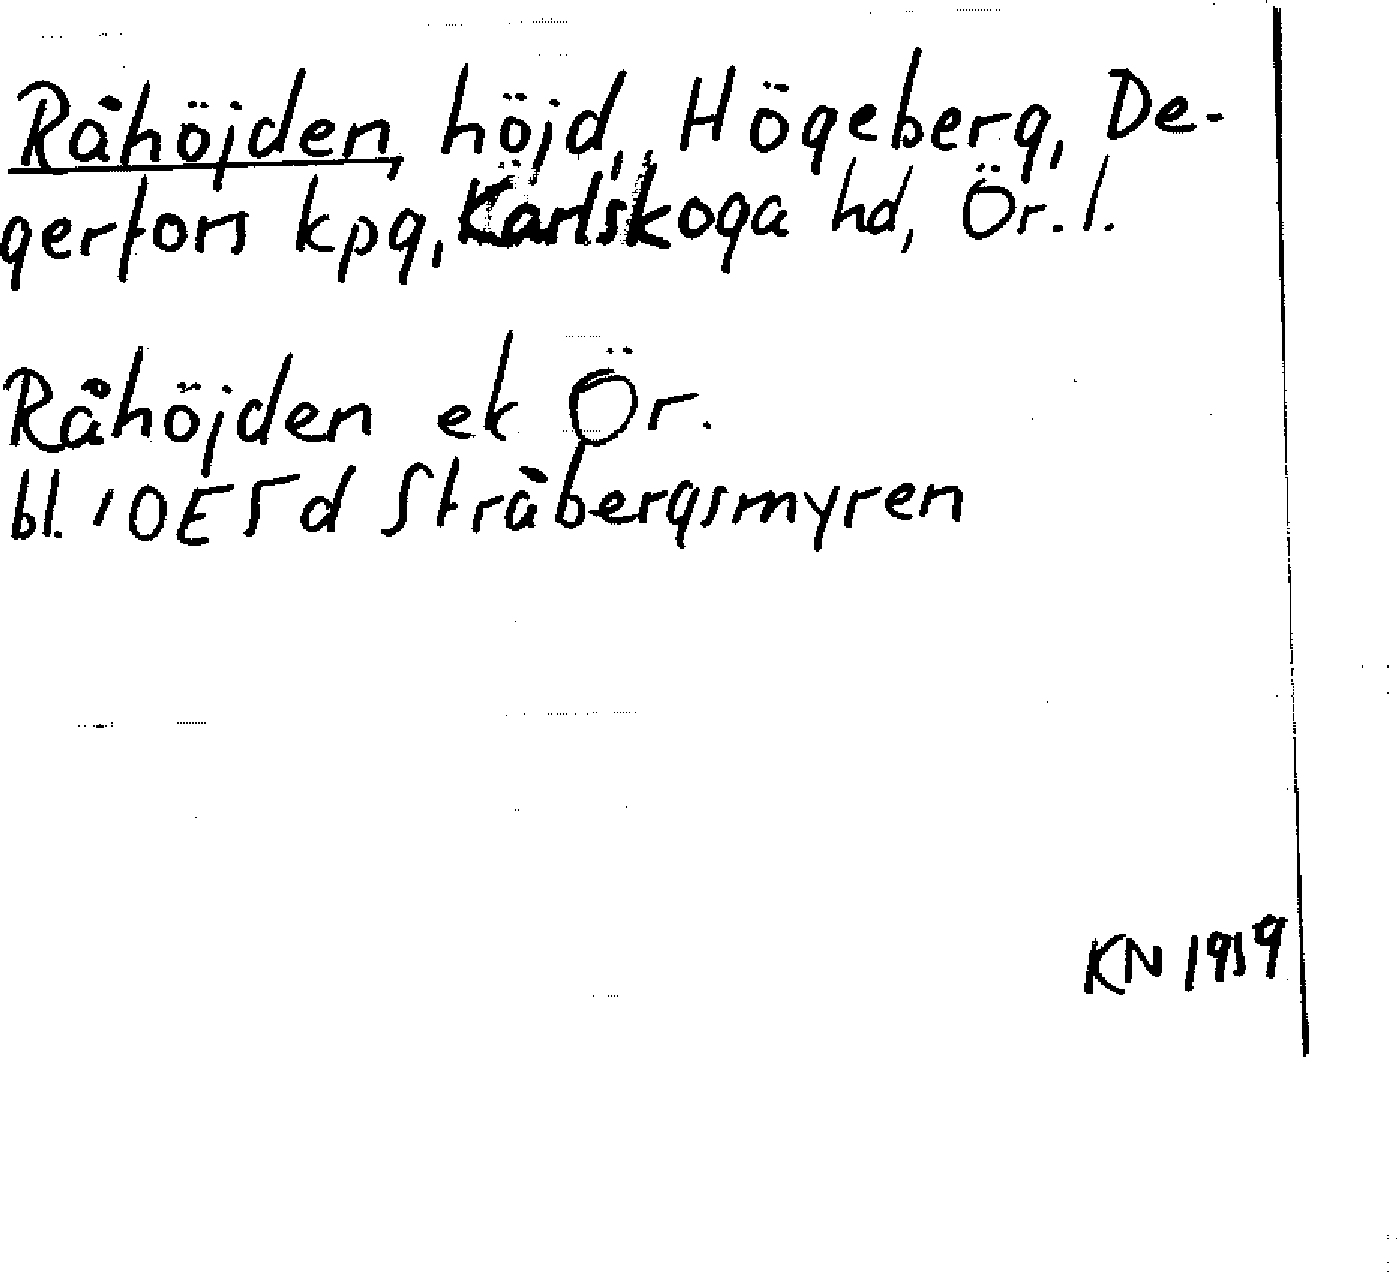 Råhöjden, höjd, Högeberg, De-
gerfors kpg, Karlskoga hd, Ör. l.
Råhöjden ek Ör.
bl. 10E5d Stråbergsmyren
KN